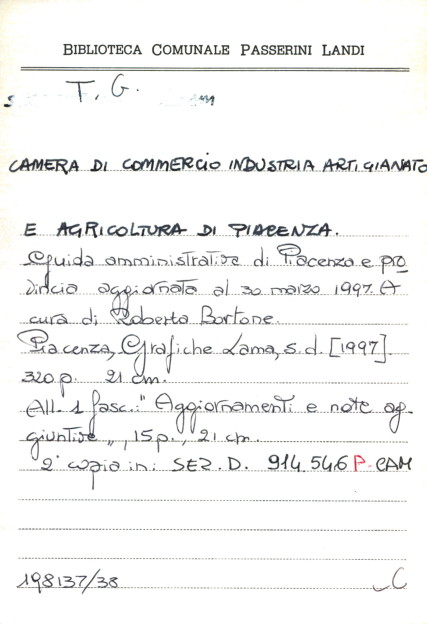 BIBLIOTECA COMUNALE PASSERINI LANDI
T. G.
CAMERA DI COMMERCIO INDUSTRIA ARTIGIANATO
E AGRICOLTURA DI PIACENZA.
Guida amministrativa di Piacenza e pro
vincia aggiornata al 30 marzo 1997. A
cura di Roberta Bortone.
Piacenza, Grafiche Lama, s.d. [1997].
320 p. 21 cm.
All. 1 fasc.: " Aggiornamenti e note ag-
giuntive ", 15 p., 21 cm.
2ª copia in: SEZ. D. 914.546 P. CAM
198137/38